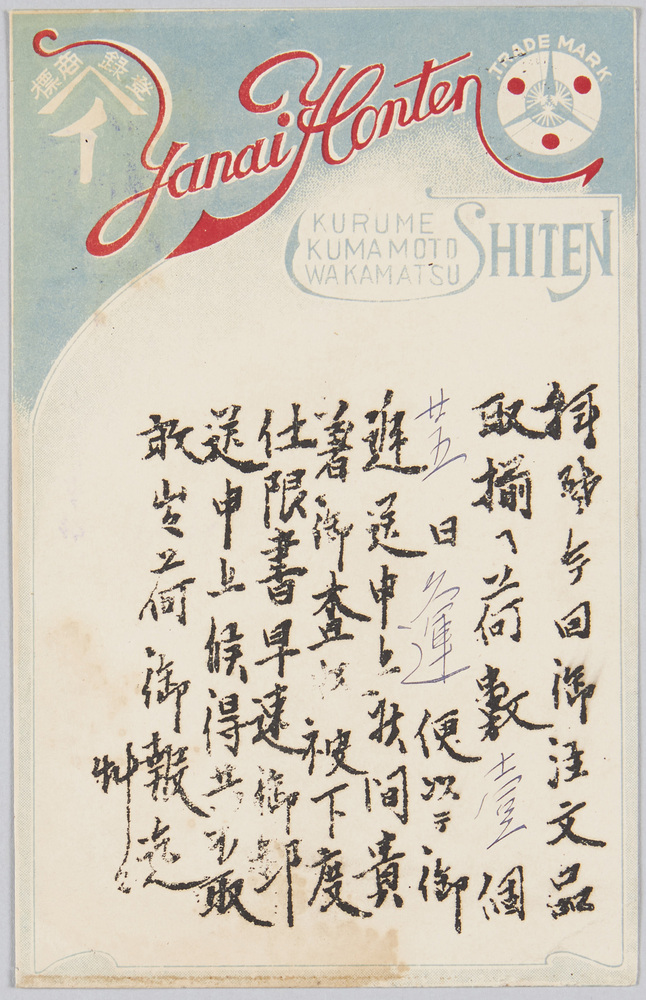 登録商標
イ
Yanai Honten
TRADE MARK
KURUME
KUMAMOTO
WAKAMATSU
SHITEN
拝啓今回御注文品
取揃ヘ荷數壹個
廿五日久運便以テ御
遞送申上候間貴
着御査被下度
仕限書早速御郵
送申上候得共不取
敢出荷御報迄
艸々